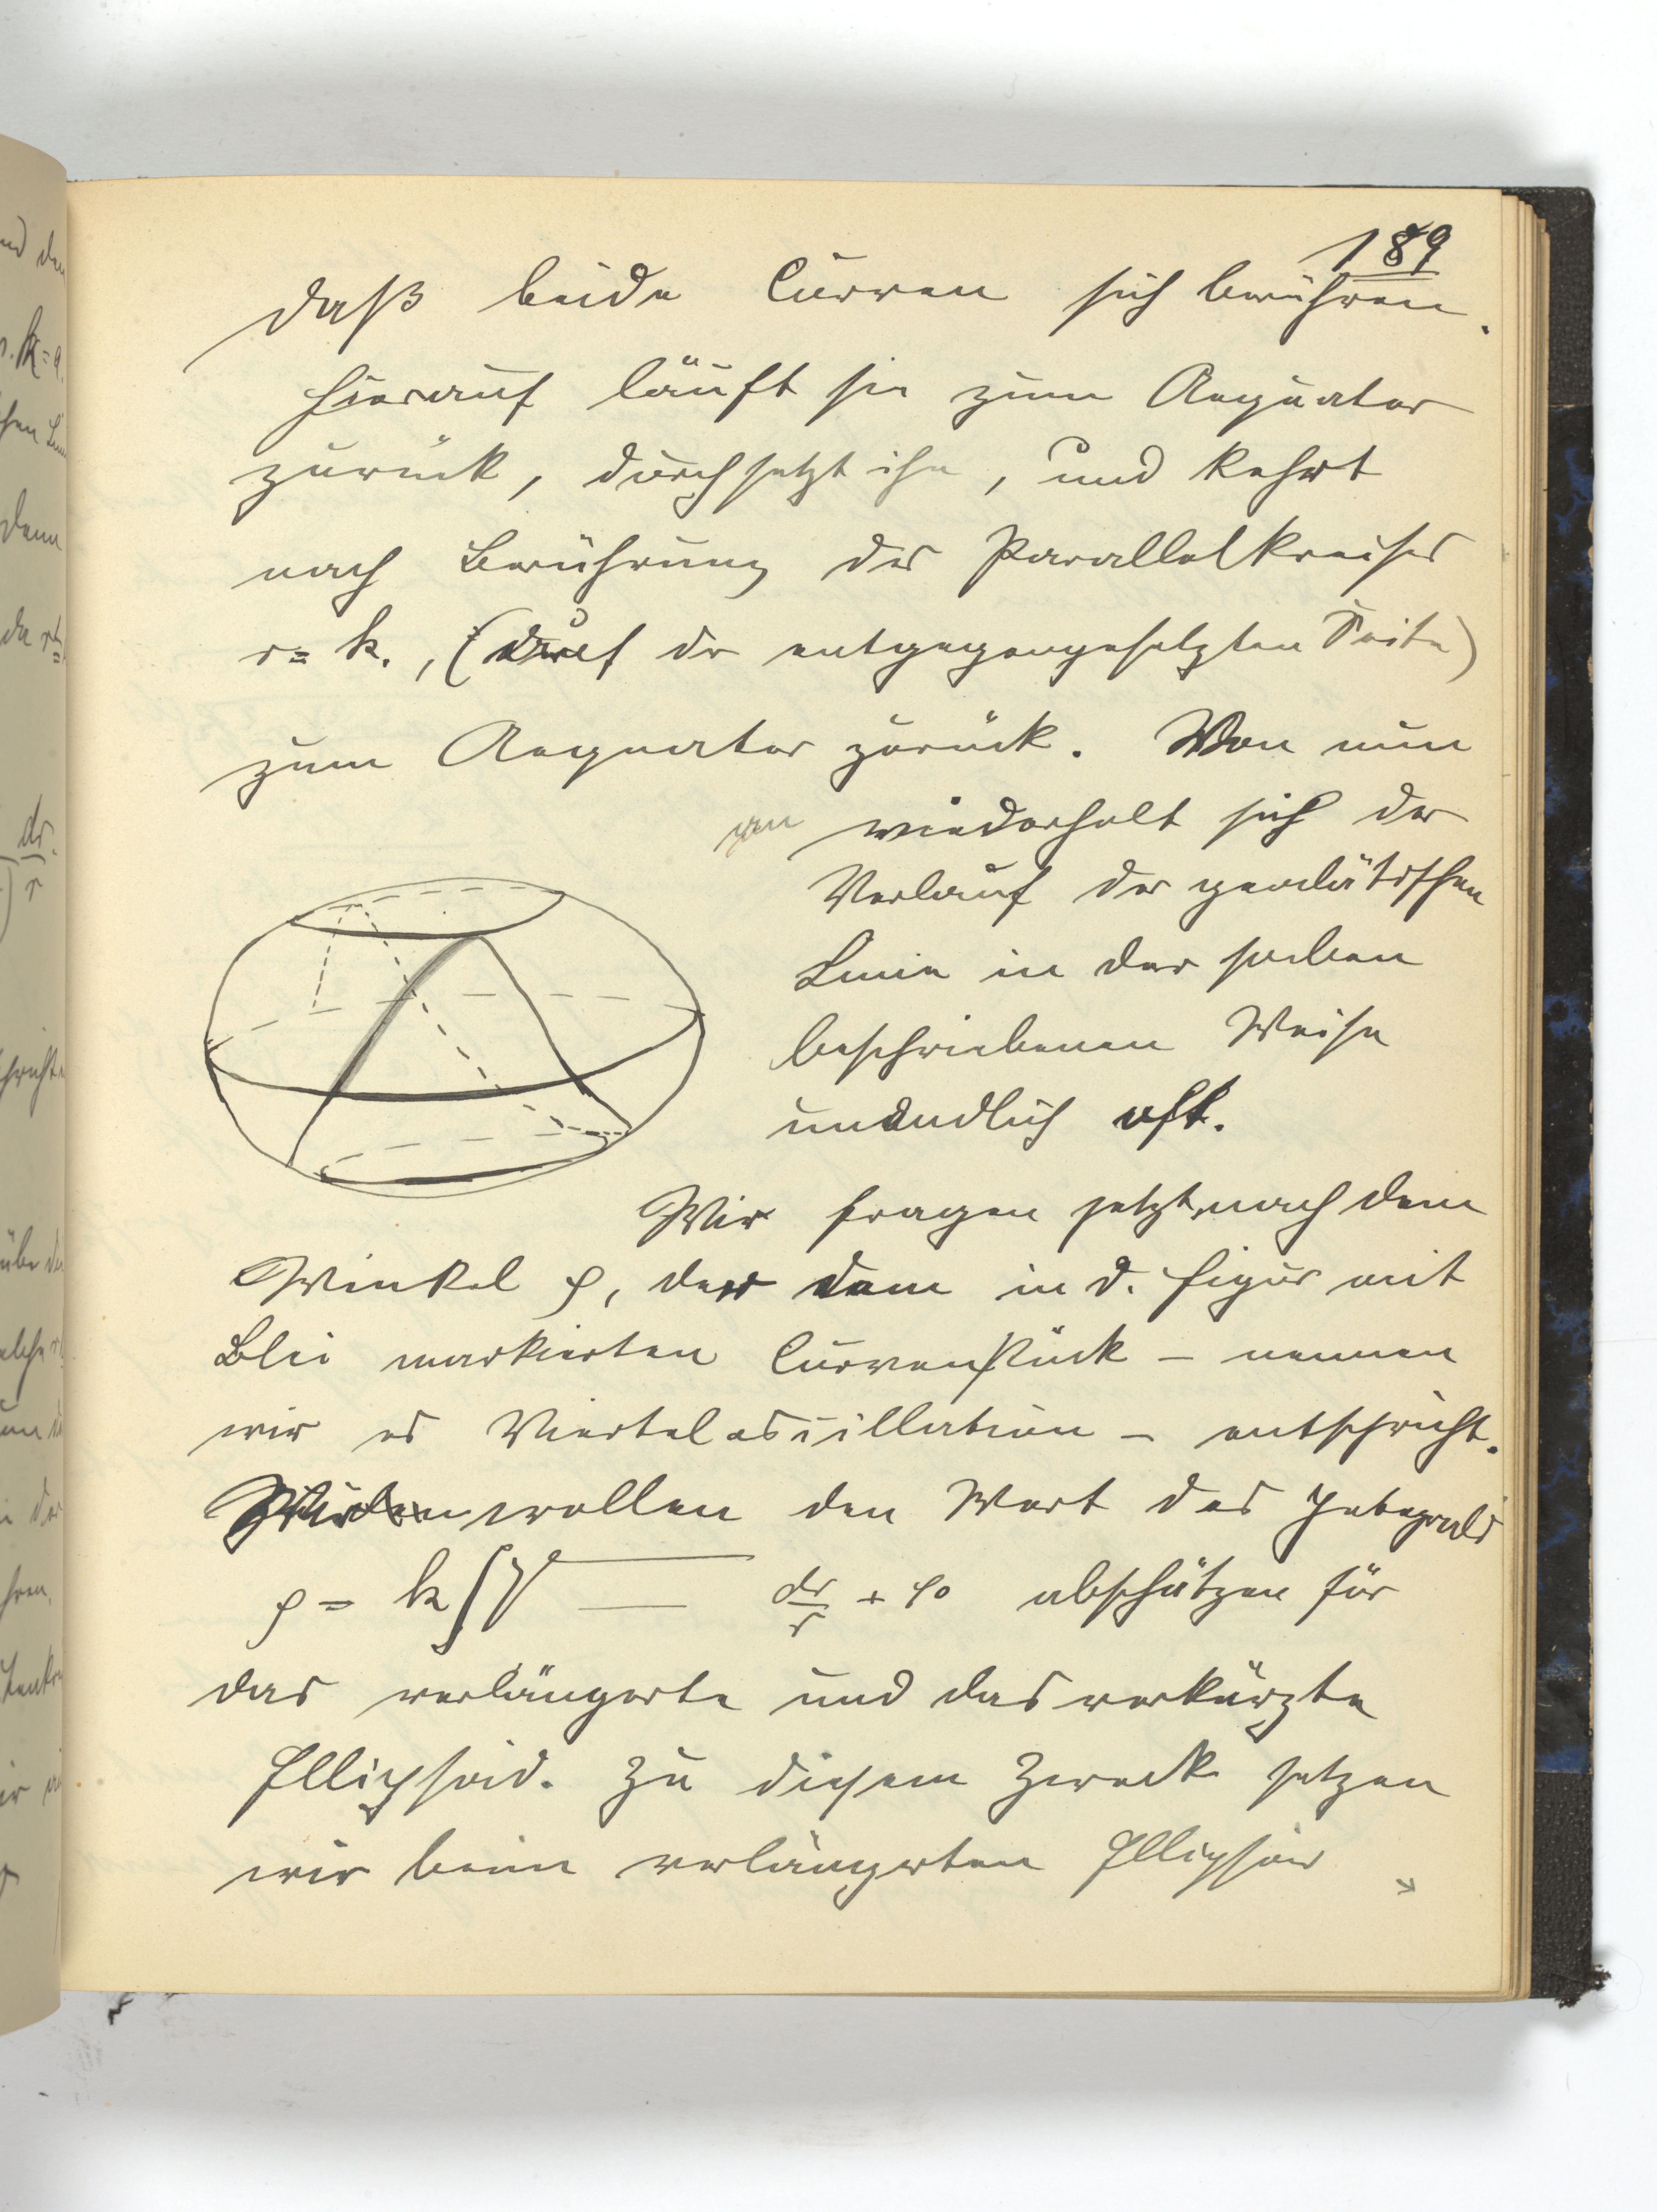 189
daß beide Curven sich berühren.
Hierauf läuft sie zum Aequator
zurück, durchsetzt ihn, und kehrt
nach Berührung des Parallelkreises
r = k., (auf der entgegengesetzten Seite)
zum Aequator zurück. Von nun
an wiederholt sich der
Verlauf der geodätischen
Linie in der soeben
beschriebenen Weise
unendlich oft.
Wir fragen jetzt nach dem
Winkel φ, der dem in d. Figur mit
Blei markierten Curvenstück – nennen
wir es Viertel oscillation – entspricht.
Wir wollen den Wert des Integrals
φ = k ∫ √ dr/r + φ0 abschätzen für
das verlängerte und das verkürzte
Ellipsoid. Zu diesem Zweck setzen
wir beim verlängerten Ellipsoid